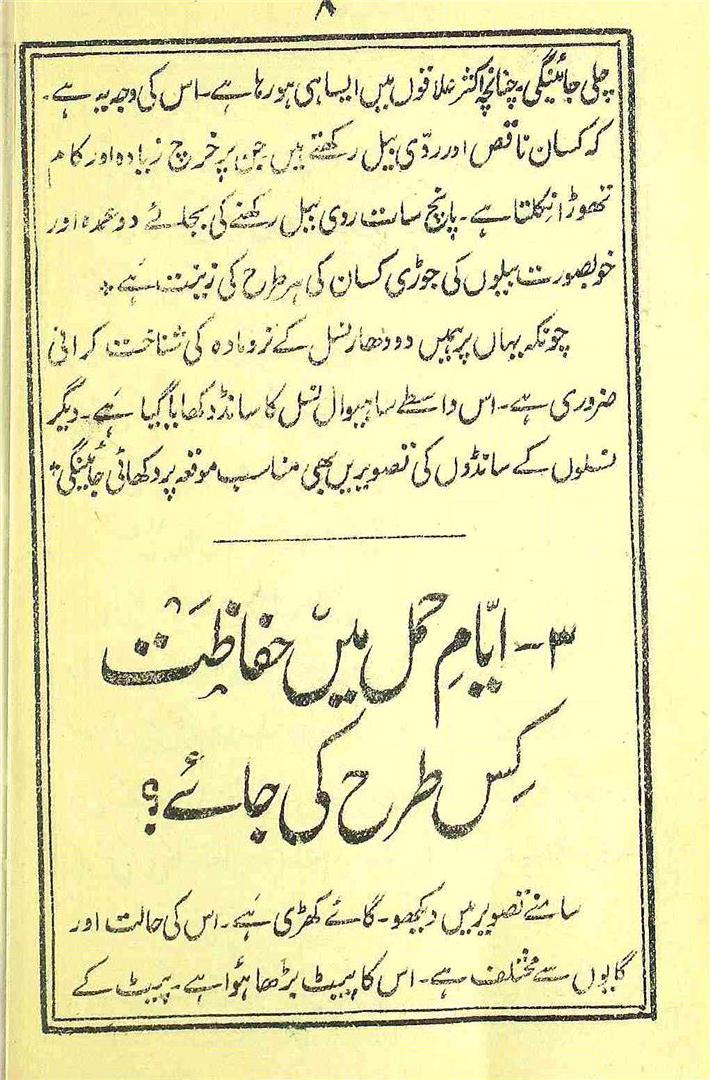 ۸
چلی جائینگی۔ چنانچہ اکثر علاقوں میں ایسا ہی ہو رہا ہے۔ اس کی وجہ یہ ہے۔
کہ کسان ناقص اور ردّی بیل رکھتے ہیں جن پر خرچ زیادہ اور کام
تھوڑا نکلتا ہے۔ پانچ سات ردی بیل رکھنے کی بجائے دو عمدہ اور
خوبصورت بیلوں کی جوڑی کسان کی ہر طرح کی زینت ہَے ٭
چونکہ یہاں پر ہمیں دودھار نسل کے نر و مادہ کی شناخت کرانی
ضروری ہے۔ اس واسطے ساہیوال نسل کا سانڈ دکھایا گیا ہَے۔ دیگر
نسلوں کے سانڈوں کی تصویریں بھی مناسب موقعہ پر دکھائی جائینگی ٭
۳۔ ایّامِ حمل میں حفاظَت
کِس طرح کی جائے؟
سامنے تصویر میں دیکھو۔ گائے کھڑی ہَے۔ اس کی حالت اور
گایوں سے مختلف ہے۔ اس کا پیٹ بڑھا ہؤا ہے۔ پیٹ کے